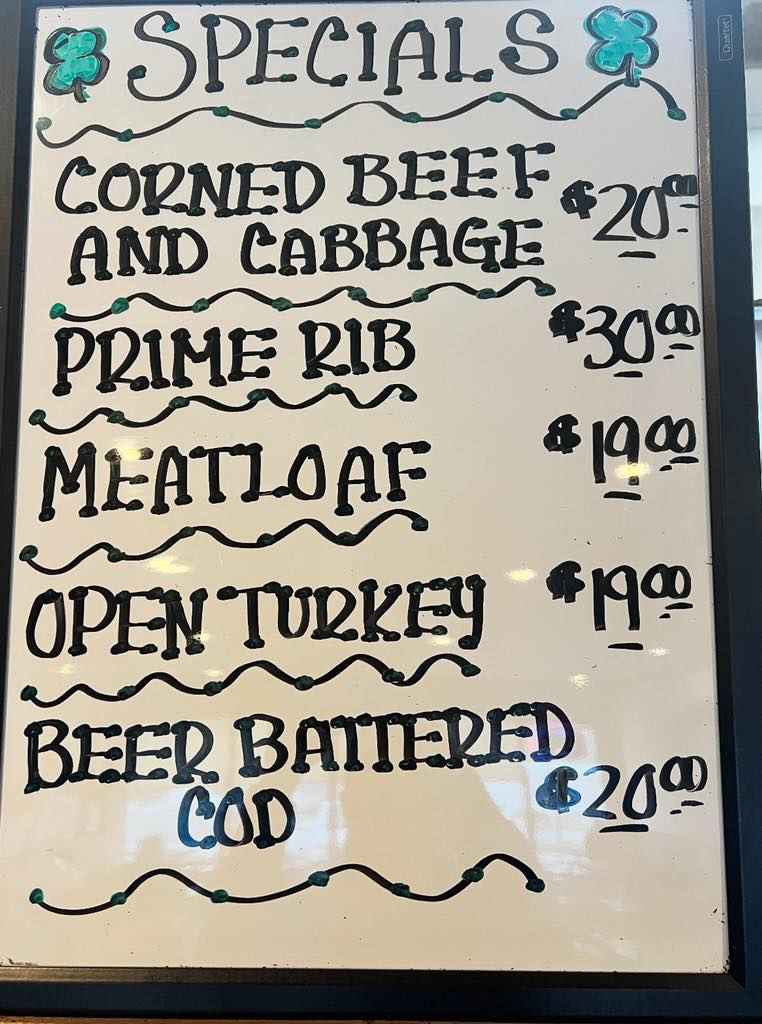 SPECIALS
Quartet
CORNED BEEF
AND CABBAGE $20.00
PRIME RIB $30.00
MEATLOAF $19.00
OPEN TURKEY $19.00
BEER BATTERED
COD $20.00